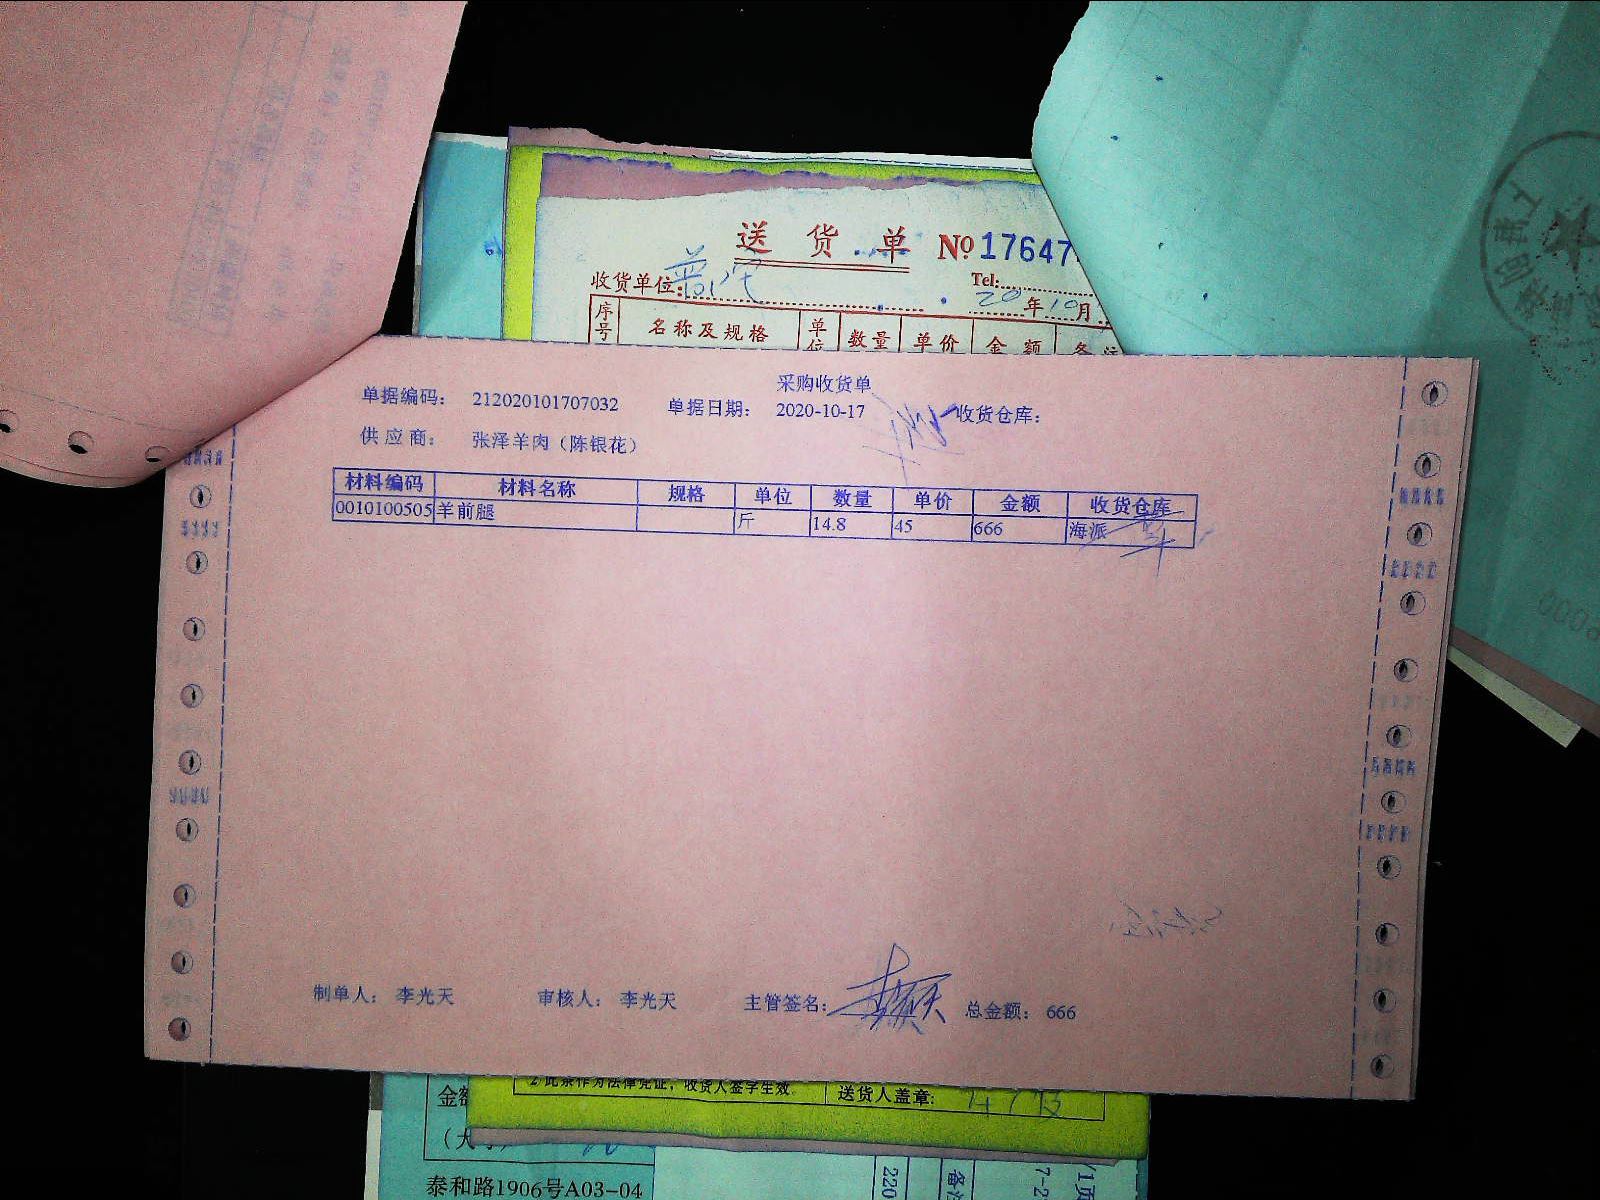 送货单 №17647
收货单位:
Tel:
20年10月
序号 名称及规格 单位 数量 单价 金额 备注
采购收货单
单据编码: 212020101707032 单据日期: 2020-10-17 收货仓库:
供应商: 张泽羊肉（陈银花）
材料编码 材料名称 规格 单位 数量 单价 金额 收货仓库
0010100505 羊前腿 斤 14.8 45 666 海派
制单人: 李光天 审核人: 李光天 主管签名: 总金额: 666
2 此票作为法律凭证，收货人签字生效 送货人盖章:
金额
泰和路1906号A03-04
220
备注
7-2
/1页